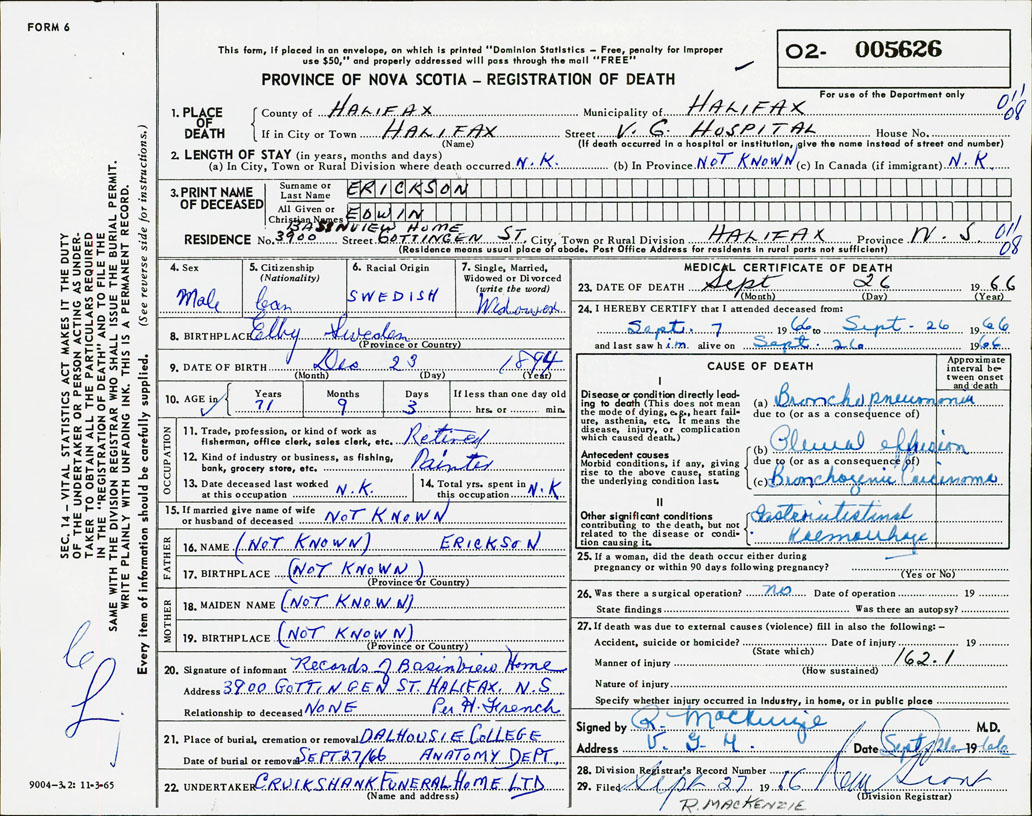 FORM 6
This form, if placed in an envelope, on which is printed "Dominion Statistics – Free, penalty for improper
use $50," and properly addressed will pass through the mail "FREE"
PROVINCE OF NOVA SCOTIA – REGISTRATION OF DEATH
02- 005626
For use of the Department only
011
08
1. PLACE OF DEATH
County of HALIFAX Municipality of HALIFAX
If in City or Town HALIFAX Street V. G. HOSPITAL House No.
(Name) (If death occurred in a hospital or institution, give the name instead of street and number)
2. LENGTH OF STAY (in years, months and days)
(a) In City, Town or Rural Division where death occurred N.K. (b) In Province NOT KNOWN (c) In Canada (if immigrant) N.K.
3. PRINT NAME OF DECEASED
Surname or Last Name ERICKSON
All Given or Christian Names EDWIN
BASINVIEW HOME
RESIDENCE No. 3900 Street GOTTINGEN ST. City, Town or Rural Division HALIFAX Province N.S.
011
08
(Residence means usual place of abode. Post Office Address for residents in rural parts not sufficient)
4. Sex
Male
5. Citizenship
(Nationality)
Can
6. Racial Origin
SWEDISH
7. Single, Married,
Widowed or Divorced
(write the word)
Widower
8. BIRTHPLACE Elby Sweden
(Province or Country)
9. DATE OF BIRTH Dec 23 1894
(Month) (Day) (Year)
10. AGE in Years Months Days If less than one day old
71 9 3 hrs. or min.
OCCUPATION
11. Trade, profession, or kind of work as
fisherman, office clerk, sales clerk, etc. Retired
12. Kind of industry or business, as fishing,
bank, grocery store, etc. Painter
13. Date deceased last worked
at this occupation N.K.
14. Total yrs. spent in
this occupation N.K
15. If married give name of wife
or husband of deceased NOT KNOWN
FATHER
16. NAME (NOT KNOWN) ERICKSON
17. BIRTHPLACE (NOT KNOWN)
(Province or Country)
MOTHER
18. MAIDEN NAME (NOT KNOWN)
19. BIRTHPLACE (NOT KNOWN)
(Province or Country)
20. Signature of informant Records of Basinview Home
Address 3900 GOTTINGEN ST. HALIFAX. N.S
Relationship to deceased NONE Per H. French
21. Place of burial, cremation or removal DALHOUSIE COLLEGE
Date of burial or removal SEPT 27/66 ANATOMY DEPT.
22. UNDERTAKER CRUIKSHANK FUNERAL HOME LTD
(Name and address)
MEDICAL CERTIFICATE OF DEATH
23. DATE OF DEATH Sept 26 1966
(Month) (Day) (Year)
24. I HEREBY CERTIFY that I attended deceased from:
Sept. 7 1966 to Sept. 26 1966
and last saw him alive on Sept. 26 1966
CAUSE OF DEATH
Approximate
interval be-
tween onset
and death
I
Disease or condition directly lead-
ing to death (This does not mean
the mode of dying, e.g., heart fail-
ure, asthenia, etc. It means the
disease, injury, or complication
which caused death.)
(a) Bronchopneumonia
due to (or as a consequence of)
Antecedent causes
Morbid conditions, if any, giving
rise to the above cause, stating
the underlying condition last.
(b) Pleural effusion
due to (or as a consequence of)
(c) Bronchogenic Carcinoma
II
Other significant conditions
contributing to the death, but not
related to the disease or condi-
tion causing it.
Gastrointestinal
Haemorrhage
25. If a woman, did the death occur either during
pregnancy or within 90 days following pregnancy?
(Yes or No)
26. Was there a surgical operation? no Date of operation 19
State findings Was there an autopsy?
27. If death was due to external causes (violence) fill in also the following:–
Accident, suicide or homicide? Date of injury 19
(State which)
Manner of injury 162.1
(How sustained)
Nature of injury
Specify whether injury occurred in industry, in home, or in public place
Signed by R. MacKenzie M.D.
Address V. G. H. Date Sept 26 1966
28. Division Registrar's Record Number
29. Filed Sept 27 1966 Grant
(Division Registrar)
R. MACKENZIE
SEC. 14 – VITAL STATISTICS ACT MAKES IT THE DUTY
OF THE UNDERTAKER OR PERSON ACTING AS UNDER-
TAKER TO OBTAIN ALL THE PARTICULARS REQUIRED
IN THE "REGISTRATION OF DEATH" AND TO FILE THE
SAME WITH THE DIVISION REGISTRAR WHO SHALL ISSUE THE BURIAL PERMIT.
WRITE PLAINLY WITH UNFADING INK. THIS IS A PERMANENT RECORD.
Every item of information should be carefully supplied. (See reverse side for instructions.)
9004-3.2: 11-3-65